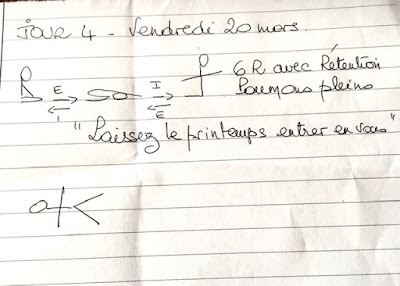 JOUR 4 - Vendredi 20 mars.
E I 6R avec Rétention
I E Poumons pleins
"Laissez le printemps entrer en vous"